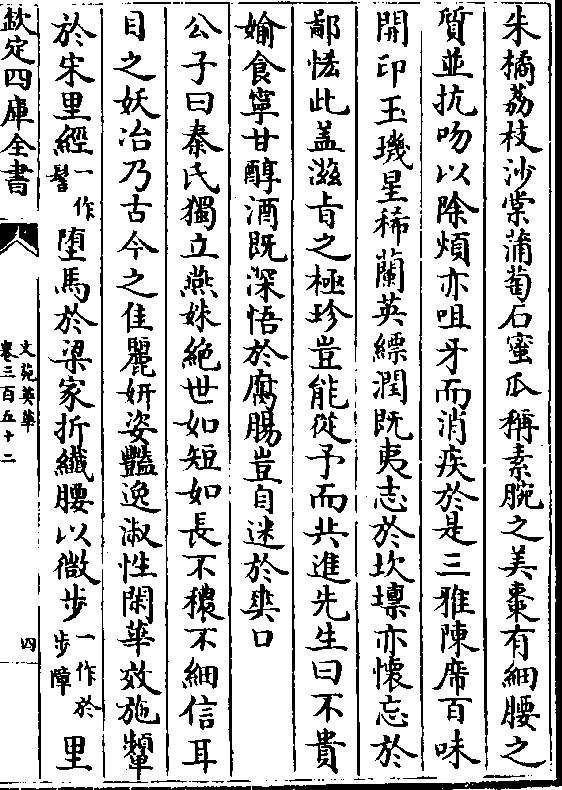 朱橘荔枝沙棠蒲萄石蜜瓜稱素腕之美棗有細腰之
質並抗吻以除煩亦咀牙而消疾於是三雅陳席百味
開印玉璣星稀蘭英縹潤既夷志於坎壈亦懷忘於
鄙恡此盖滋旨之極珍豈能從予而共進先生曰不貴
媮食寧甘醇酒既深悟於腐腸豈自迷於爽口
公子曰秦氏獨立燕姝絶世如短如長不穠不細信耳
目之妖冶乃古今之佳麗妍姿豔逸淑性閑華效施顰
於宋里經一作髻墮馬於梁家折纖腰以微步一作於步障里
欽定四庫全書
文苑英華
卷三百五十二
四